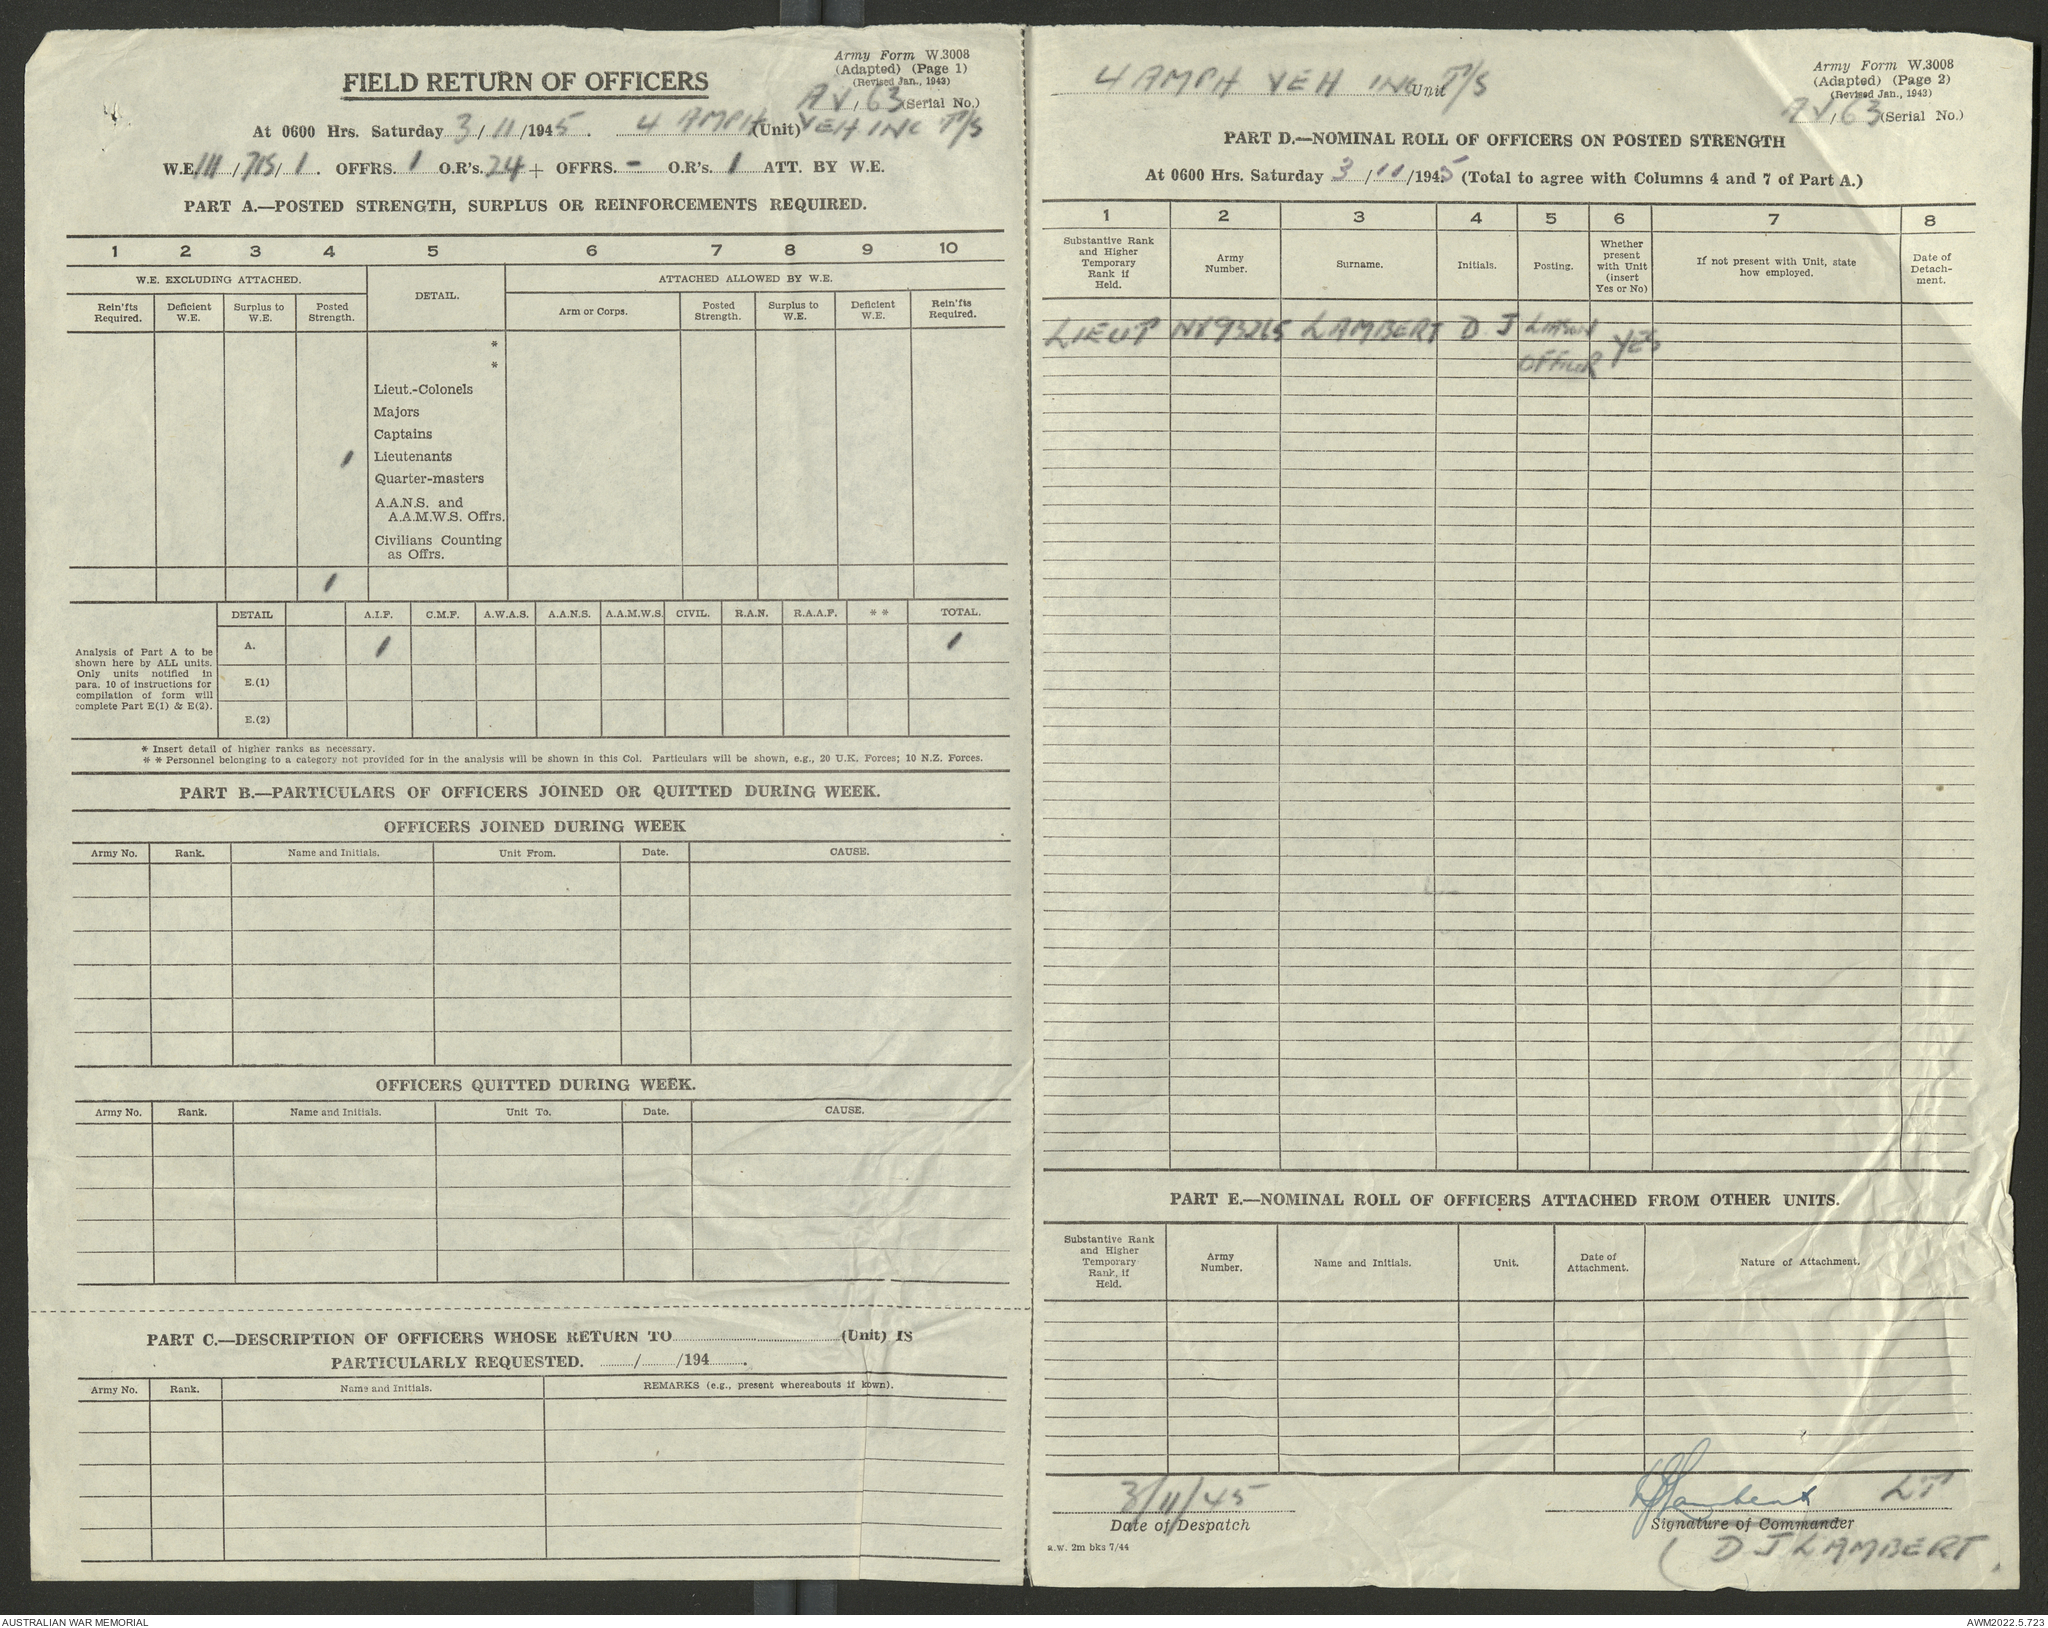 Army Form W.3008
(Adapted) (Page 1)
(Revised Jan., 1943)
FIELD RETURN OF OFFICERS
AV/63 (Serial No.)
At 0600 Hrs. Saturday 3/11/1945. 4 AMPH VEH INC P/S (Unit)
W.E. III/715/1. OFFRS. 1 O.R's. 24 + OFFRS. - O.R's. 1 ATT. BY W.E.
PART A.—POSTED STRENGTH, SURPLUS OR REINFORCEMENTS REQUIRED.
1 2 3 4 5 6 7 8 9 10
W.E. EXCLUDING ATTACHED. DETAIL. ATTACHED ALLOWED BY W.E.
Rein'fts Required. Deficient W.E. Surplus to W.E. Posted Strength. Arm or Corps. Posted Strength. Surplus to W.E. Deficient W.E. Rein'fts Required.
*
*
Lieut.-Colonels
Majors
Captains
1 Lieutenants
Quarter-masters
A.A.N.S. and
A.A.M.W.S. Offrs.
Civilians Counting
as Offrs.
1
DETAIL A.I.F. C.M.F. A.W.A.S. A.A.N.S. A.A.M.W.S. CIVIL. R.A.N. R.A.A.F. * * TOTAL.
Analysis of Part A to be
shown here by ALL units.
Only units notified in
para. 10 of instructions for
compilation of form will
complete Part E(1) & E(2).
A. 1 1
E.(1)
E.(2)
* Insert detail of higher ranks as necessary.
* * Personnel belonging to a category not provided for in the analysis will be shown in this Col. Particulars will be shown, e.g., 20 U.K. Forces; 10 N.Z. Forces.
PART B.—PARTICULARS OF OFFICERS JOINED OR QUITTED DURING WEEK.
OFFICERS JOINED DURING WEEK
Army No. Rank. Name and Initials. Unit From. Date. CAUSE.
OFFICERS QUITTED DURING WEEK.
Army No. Rank. Name and Initials. Unit To. Date. CAUSE.
PART C.—DESCRIPTION OF OFFICERS WHOSE RETURN TO (Unit) IS
PARTICULARLY REQUESTED. / /194 .
Army No. Rank. Name and Initials. REMARKS (e.g., present whereabouts if kown).
4 AMPH VEH INC P/S Unit
Army Form W.3008
(Adapted) (Page 2)
(Revised Jan., 1943)
AV/63 (Serial No.)
PART D.—NOMINAL ROLL OF OFFICERS ON POSTED STRENGTH
At 0600 Hrs. Saturday 3/11/1945 (Total to agree with Columns 4 and 7 of Part A.)
1 2 3 4 5 6 7 8
Substantive Rank and Higher Temporary Rank if Held. Army Number. Surname. Initials. Posting. Whether present with Unit (insert Yes or No) If not present with Unit, state how employed. Date of Detach-ment.
LIEUT NX93265 LAMBERT D J LIAISON OFFICER YES
PART E.—NOMINAL ROLL OF OFFICERS ATTACHED FROM OTHER UNITS.
Substantive Rank and Higher Temporary Rank, if Held. Army Number. Name and Initials. Unit. Date of Attachment. Nature of Attachment.
3/11/45 DJLambert LT
Date of Despatch Signature of Commander
a.w. 2m bks 7/44
(D J LAMBERT.
AUSTRALIAN WAR MEMORIAL AWM2022.5.723